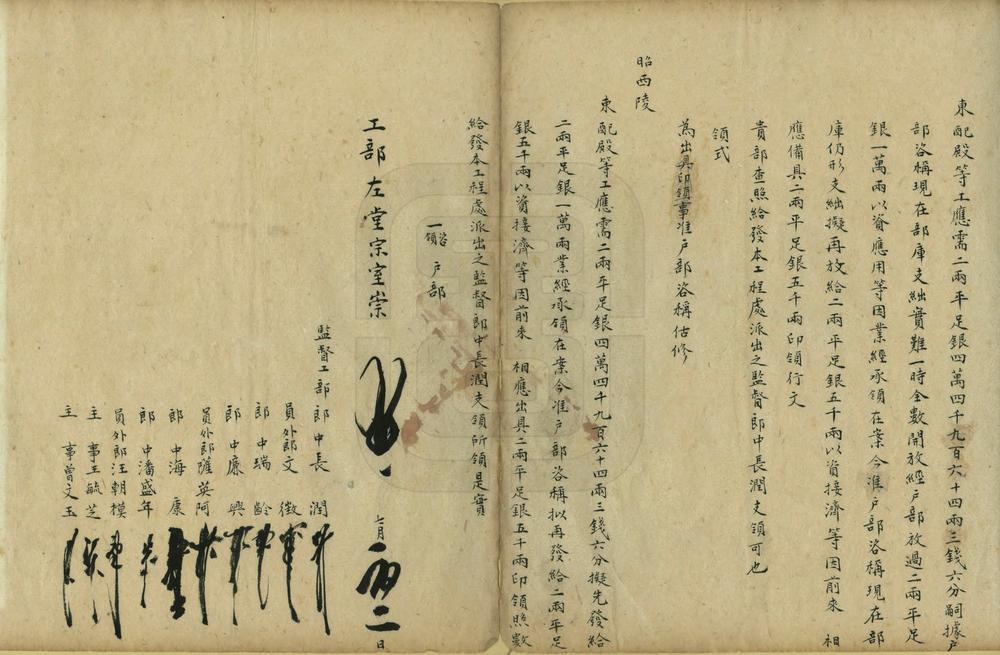 東配殿等工應需二兩平足銀四萬四千九百六十四兩三錢六分嗣據戶
部咨稱現在部庫支絀實難一時全數開放經戶部放過二兩平足
銀一萬兩以資應用等因業經承領在案今准戶部咨稱現在部
庫仍形支絀擬再放給二兩平足銀五千兩以資接濟等因前來 相
應備具二兩平足銀五千兩印領行文
貴部查照給發本工程處派出之監督郎中長潤支領可也
領式
為出具印領事准戶部咨稱估修
昭西陵
東配殿等工應需二兩平足銀四萬四千九百六十四兩三錢六分擬先發給
二兩平足銀一萬兩業經承領在案今准戶部咨稱擬再發給二兩平足
銀五千兩以資接濟等因前來 相應出具二兩平足銀五千兩印領照數
給發本工程處派出之監督郎中長潤支領所領是實
一咨領 戶部
工部左堂宗室崇 七月 二日
監督工部郎中長潤
員外郎文徵
郎中瑞齡
郎中廉興
員外郎薩英阿
郎中海康
郎中潘盛年
員外郎汪朝模
主事王毓芝
主事曾文玉